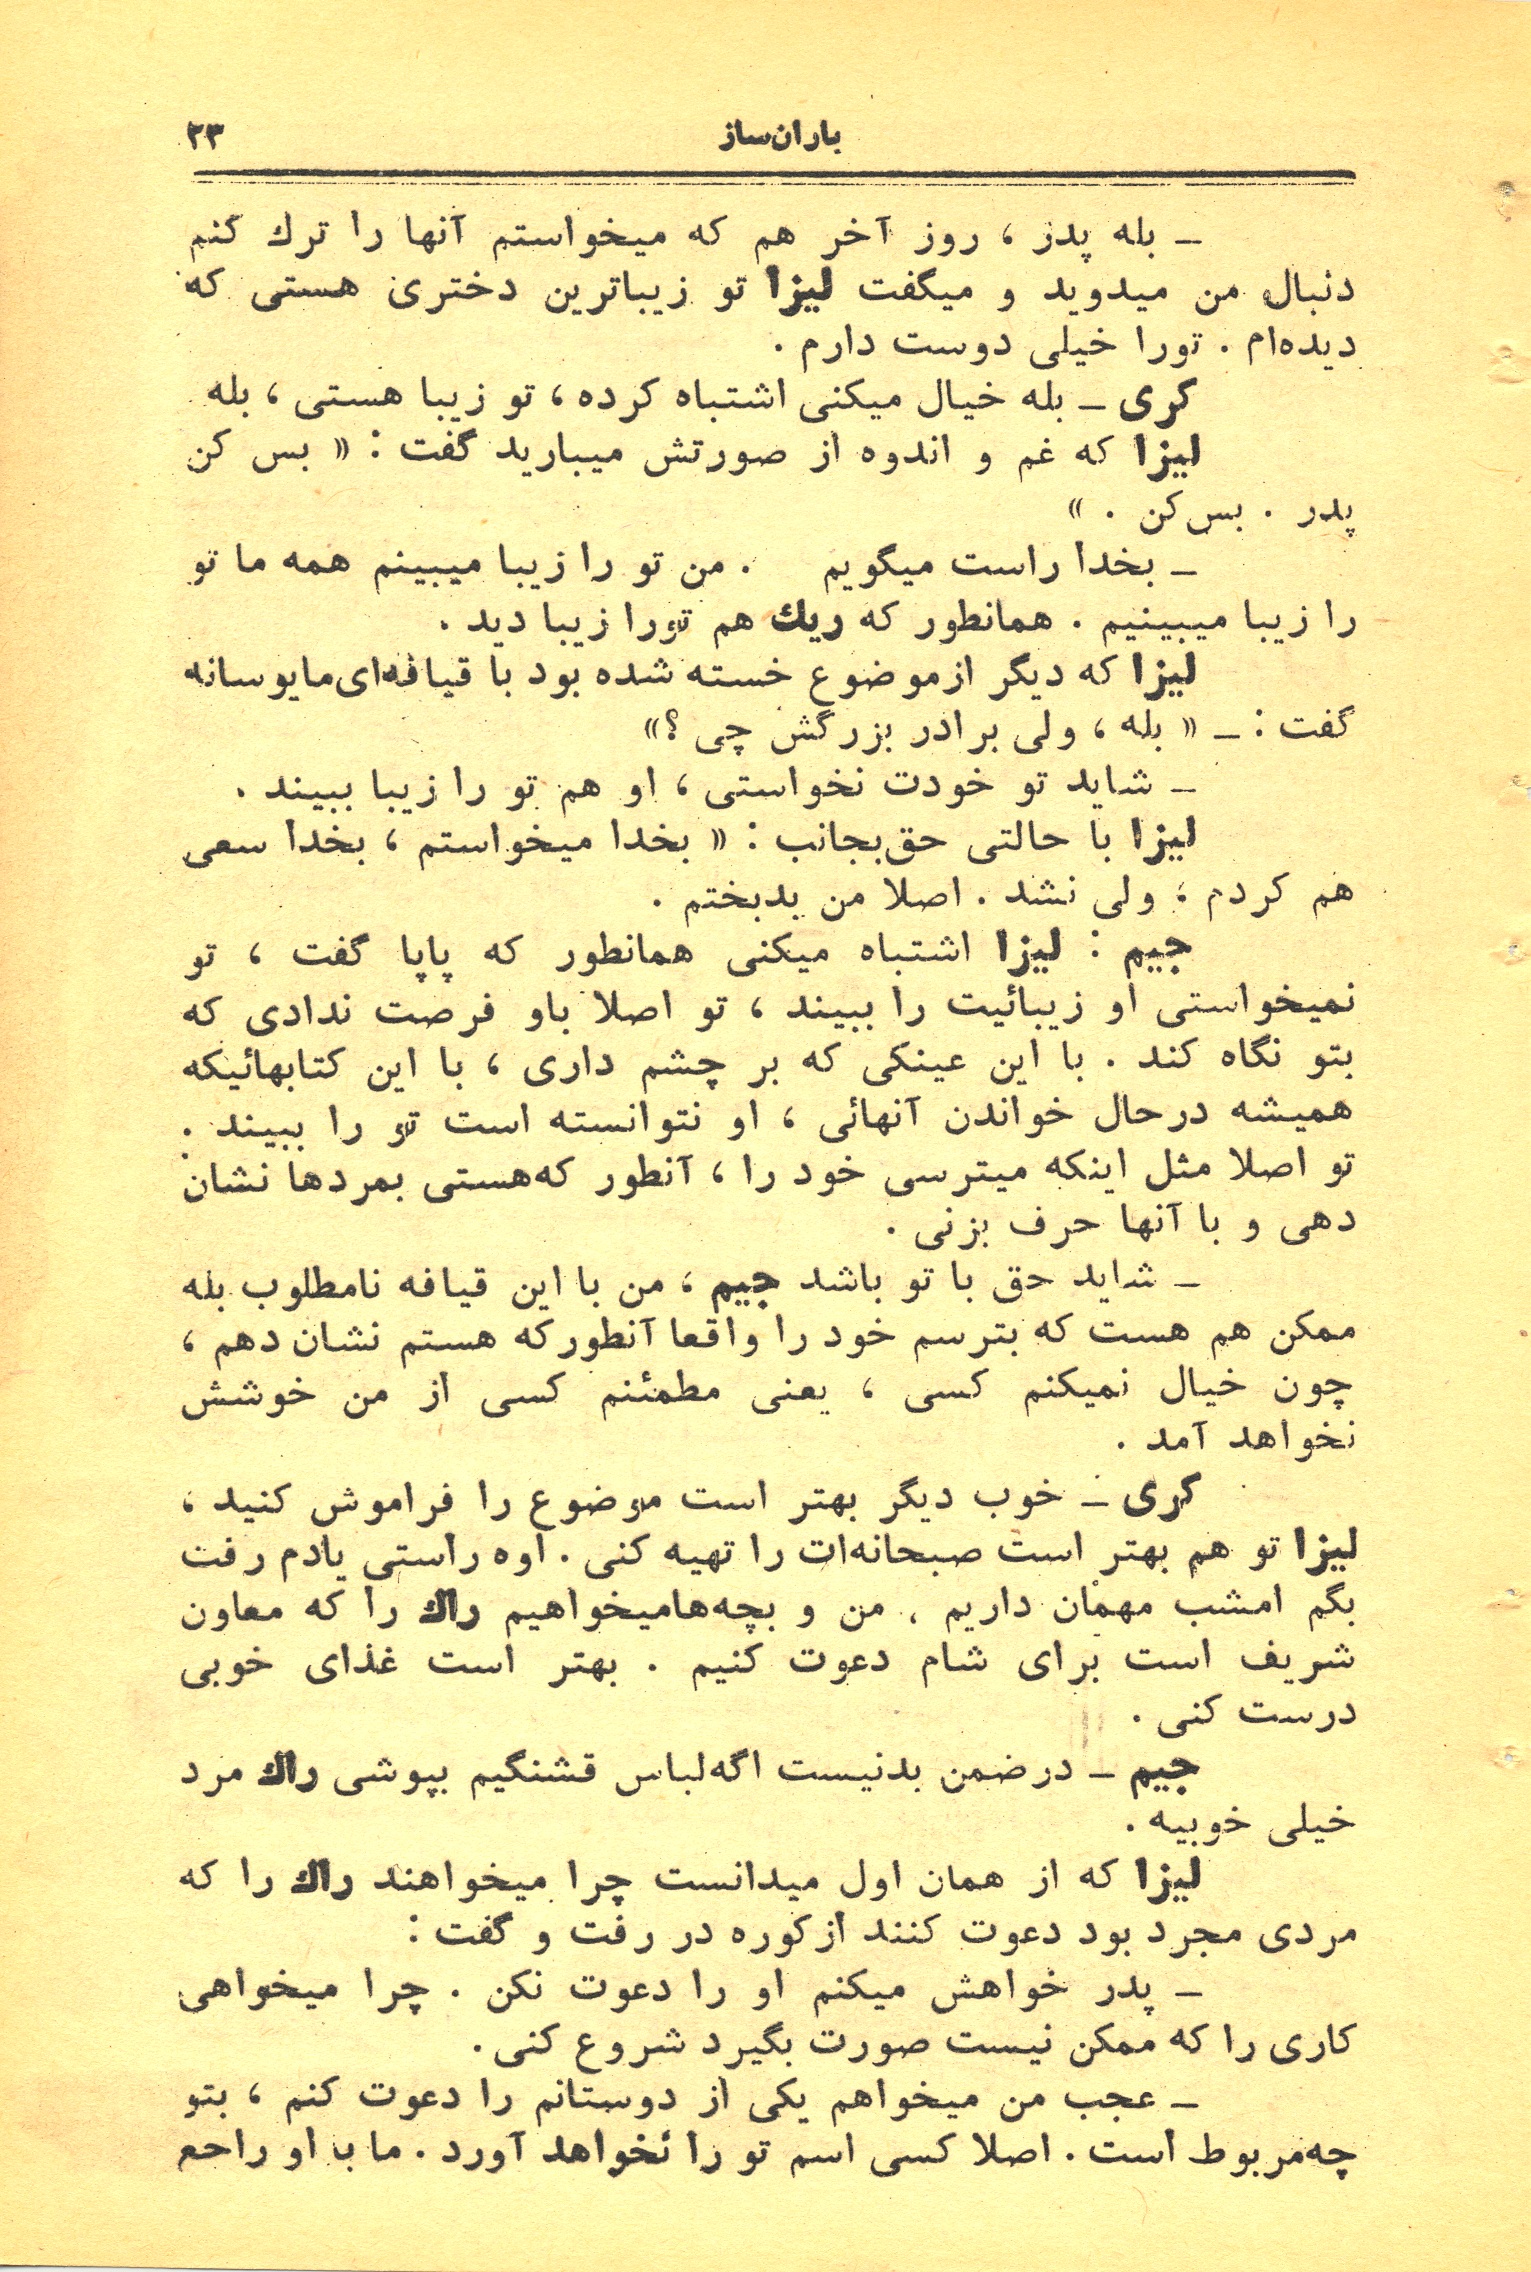 باران‌ساز ۲۳
ـ بله پدر ، روز آخر هم که میخواستم آنها را ترك کنم
دنبال من میدوید و میگفت لیزا تو زیباترین دختری هستی که
دیده‌ام . تورا خیلی دوست دارم .
کری ـ بله خیال میکنی اشتباه کرده ، تو زیبا هستی ، بله
لیزا که غم و اندوه از صورتش میبارید گفت : « بس کن
پدر . بس‌کن . »
ـ بخدا راست میگویم . من تو را زیبا میبینم همه ما تو
را زیبا میبینیم . همانطور که ریك هم تورا زیبا دید .
لیزا که دیگر ازموضوع خسته شده بود با قیافه‌ای‌مایوسانه
گفت : ـ « بله ، ولی برادر بزرگش چی ؟»
ـ شاید تو خودت نخواستی ، او هم تو را زیبا ببیند .
لیزا با حالتی حق‌بجانب : « بخدا میخواستم ، بخدا سعی
هم کردم ، ولی نشد . اصلا من بدبختم .
جیم : لیزا اشتباه میکنی همانطور که پاپا گفت ، تو
نمیخواستی او زیبائیت را ببیند ، تو اصلا باو فرصت ندادی که
بتو نگاه کند . با این عینکی که بر چشم داری ، با این کتابهائیکه
همیشه درحال خواندن آنهائی ، او نتوانسته است تو را ببیند .
تو اصلا مثل اینکه میترسی خود را ، آنطور که‌هستی بمردها نشان
دهی و با آنها حرف بزنی .
ـ شاید حق با تو باشد جیم ، من با این قیافه نامطلوب بله
ممکن هم هست که بترسم خود را واقعا آنطورکه هستم نشان دهم ،
چون خیال نمیکنم کسی ، یعنی مطمئنم کسی از من خوشش
نخواهد آمد .
کری ـ خوب دیگر بهتر است موضوع را فراموش کنید ،
لیزا تو هم بهتر است صبحانه‌ات را تهیه کنی . اوه راستی یادم رفت
بگم امشب مهمان داریم ، من و بچه‌هامیخواهیم راك را که معاون
شریف است برای شام دعوت کنیم . بهتر است غذای خوبی
درست کنی .
جیم ـ درضمن بدنیست اگه‌لباس قشنگیم بپوشی راك مرد
خیلی خوبیه .
لیزا که از همان اول میدانست چرا میخواهند راك را که
مردی مجرد بود دعوت کنند ازکوره در رفت و گفت :
ـ پدر خواهش میکنم او را دعوت نکن . چرا میخواهی
کاری را که ممکن نیست صورت بگیرد شروع کنی .
ـ عجب من میخواهم یکی از دوستانم را دعوت کنم ، بتو
چه‌مربوط است . اصلا کسی اسم تو را نخواهد آورد . ما با او راجع